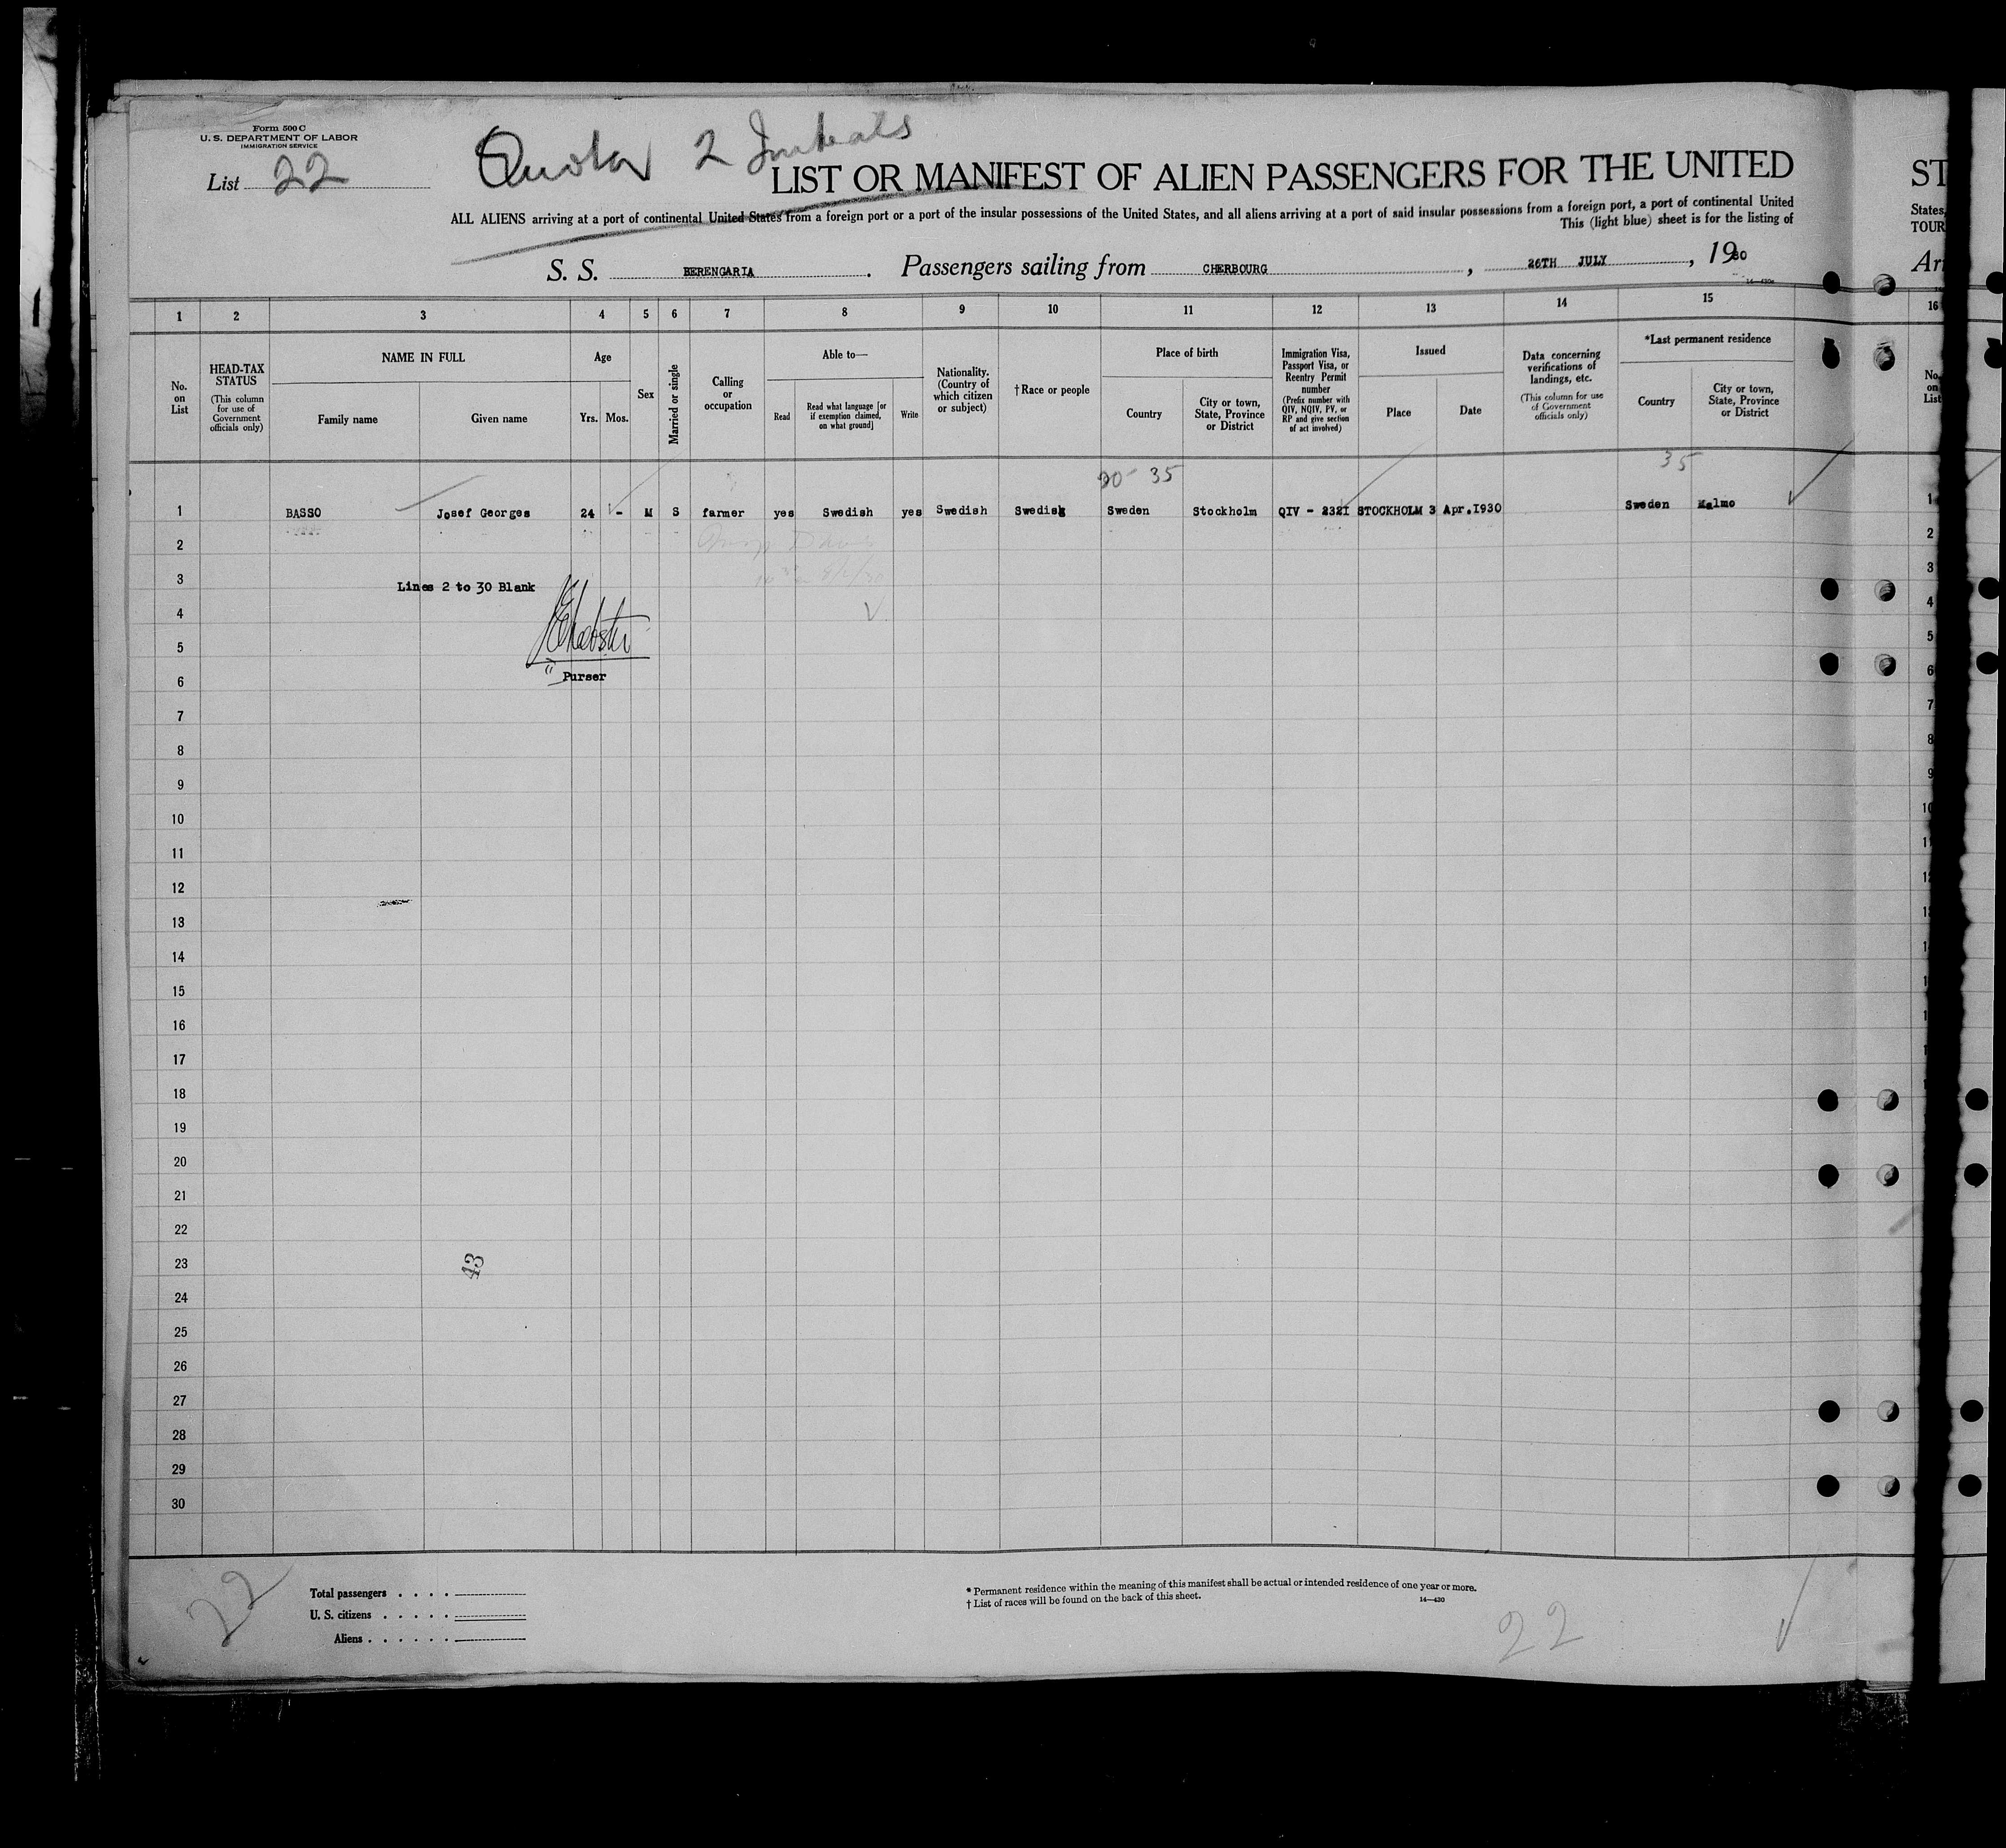 Form 500 C
U. S. DEPARTMENT OF LABOR
IMMIGRATION SERVICE
List 22
Quota 2
LIST OR MANIFEST OF ALIEN PASSENGERS FOR THE UNITED
ST
ALL ALIENS arriving at a port of continental United States from a foreign port or a port of the insular possessions of the United States, and all aliens arriving at a port of said insular possessions from a foreign port, a port of continental United
States,
This (light blue) sheet is for the listing of
TOUR
S. S. BERENGARIA. Passengers sailing from CHERBOURG, 26TH JULY, 1930
Arr
1 2 3 4 5 6 7 8 9 10 11 12 13 14 15 16
No. on List
HEAD-TAX STATUS (This column for use of Government officials only)
NAME IN FULL
Family name Given name
Age
Yrs. Mos.
Sex
Married or single
Calling or occupation
Able to—
Read
Read what language [or if exemption claimed, on what ground]
Write
Nationality. (Country of which citizen or subject)
†Race or people
Place of birth
Country
City or town, State, Province or District
Immigration Visa, Passport Visa, or Reentry Permit number (Prefix number with QIV, NQIV, PV, or RP and give section of act involved)
Issued
Place Date
Data concerning verifications of landings, etc. (This column for use of Government officials only)
*Last permanent residence
Country
City or town, State, Province or District
No. on List
35 35
1 BASSO Josef Georges 24 - M S farmer yes Swedish yes Swedish Swedish Sweden Stockholm QIV - 2321 STOCKHOLM 3 Apr.1930 Sweden Malmo 1
2 2
3 Lines 2 to 30 Blank 3
4 4
5 5
6 Purser 6
7 7
8 8
9 9
10 10
11
12
13
14
15
16
17
18
19
20
21
22
23 43
24
25
26
27
28
29
30
22
Total passengers . . . .
U. S. citizens . . . . .
Aliens . . . . . .
* Permanent residence within the meaning of this manifest shall be actual or intended residence of one year or more.
† List of races will be found on the back of this sheet.
14—430
22